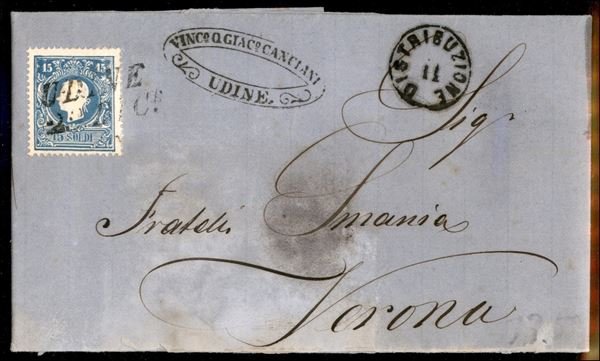 15 15
UDINE
15 SOLDI
VINCº Q. GIACº CANCIANI
UDINE.
DISTRIBUZIONE
11
Sig.
Fratelli Smania
Verona